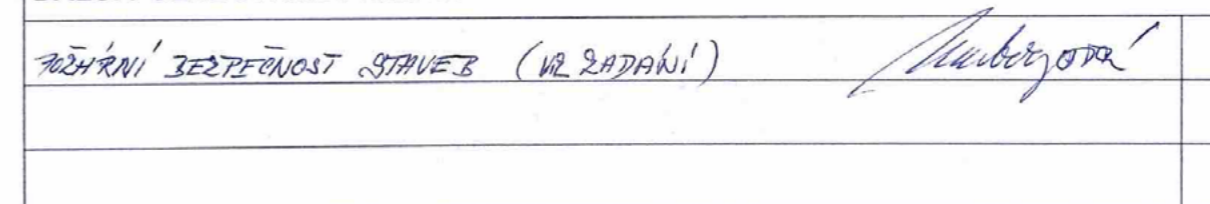 POŽÁRNÍ BEZPEČNOST STAVEB (VIZ ZADÁNÍ)